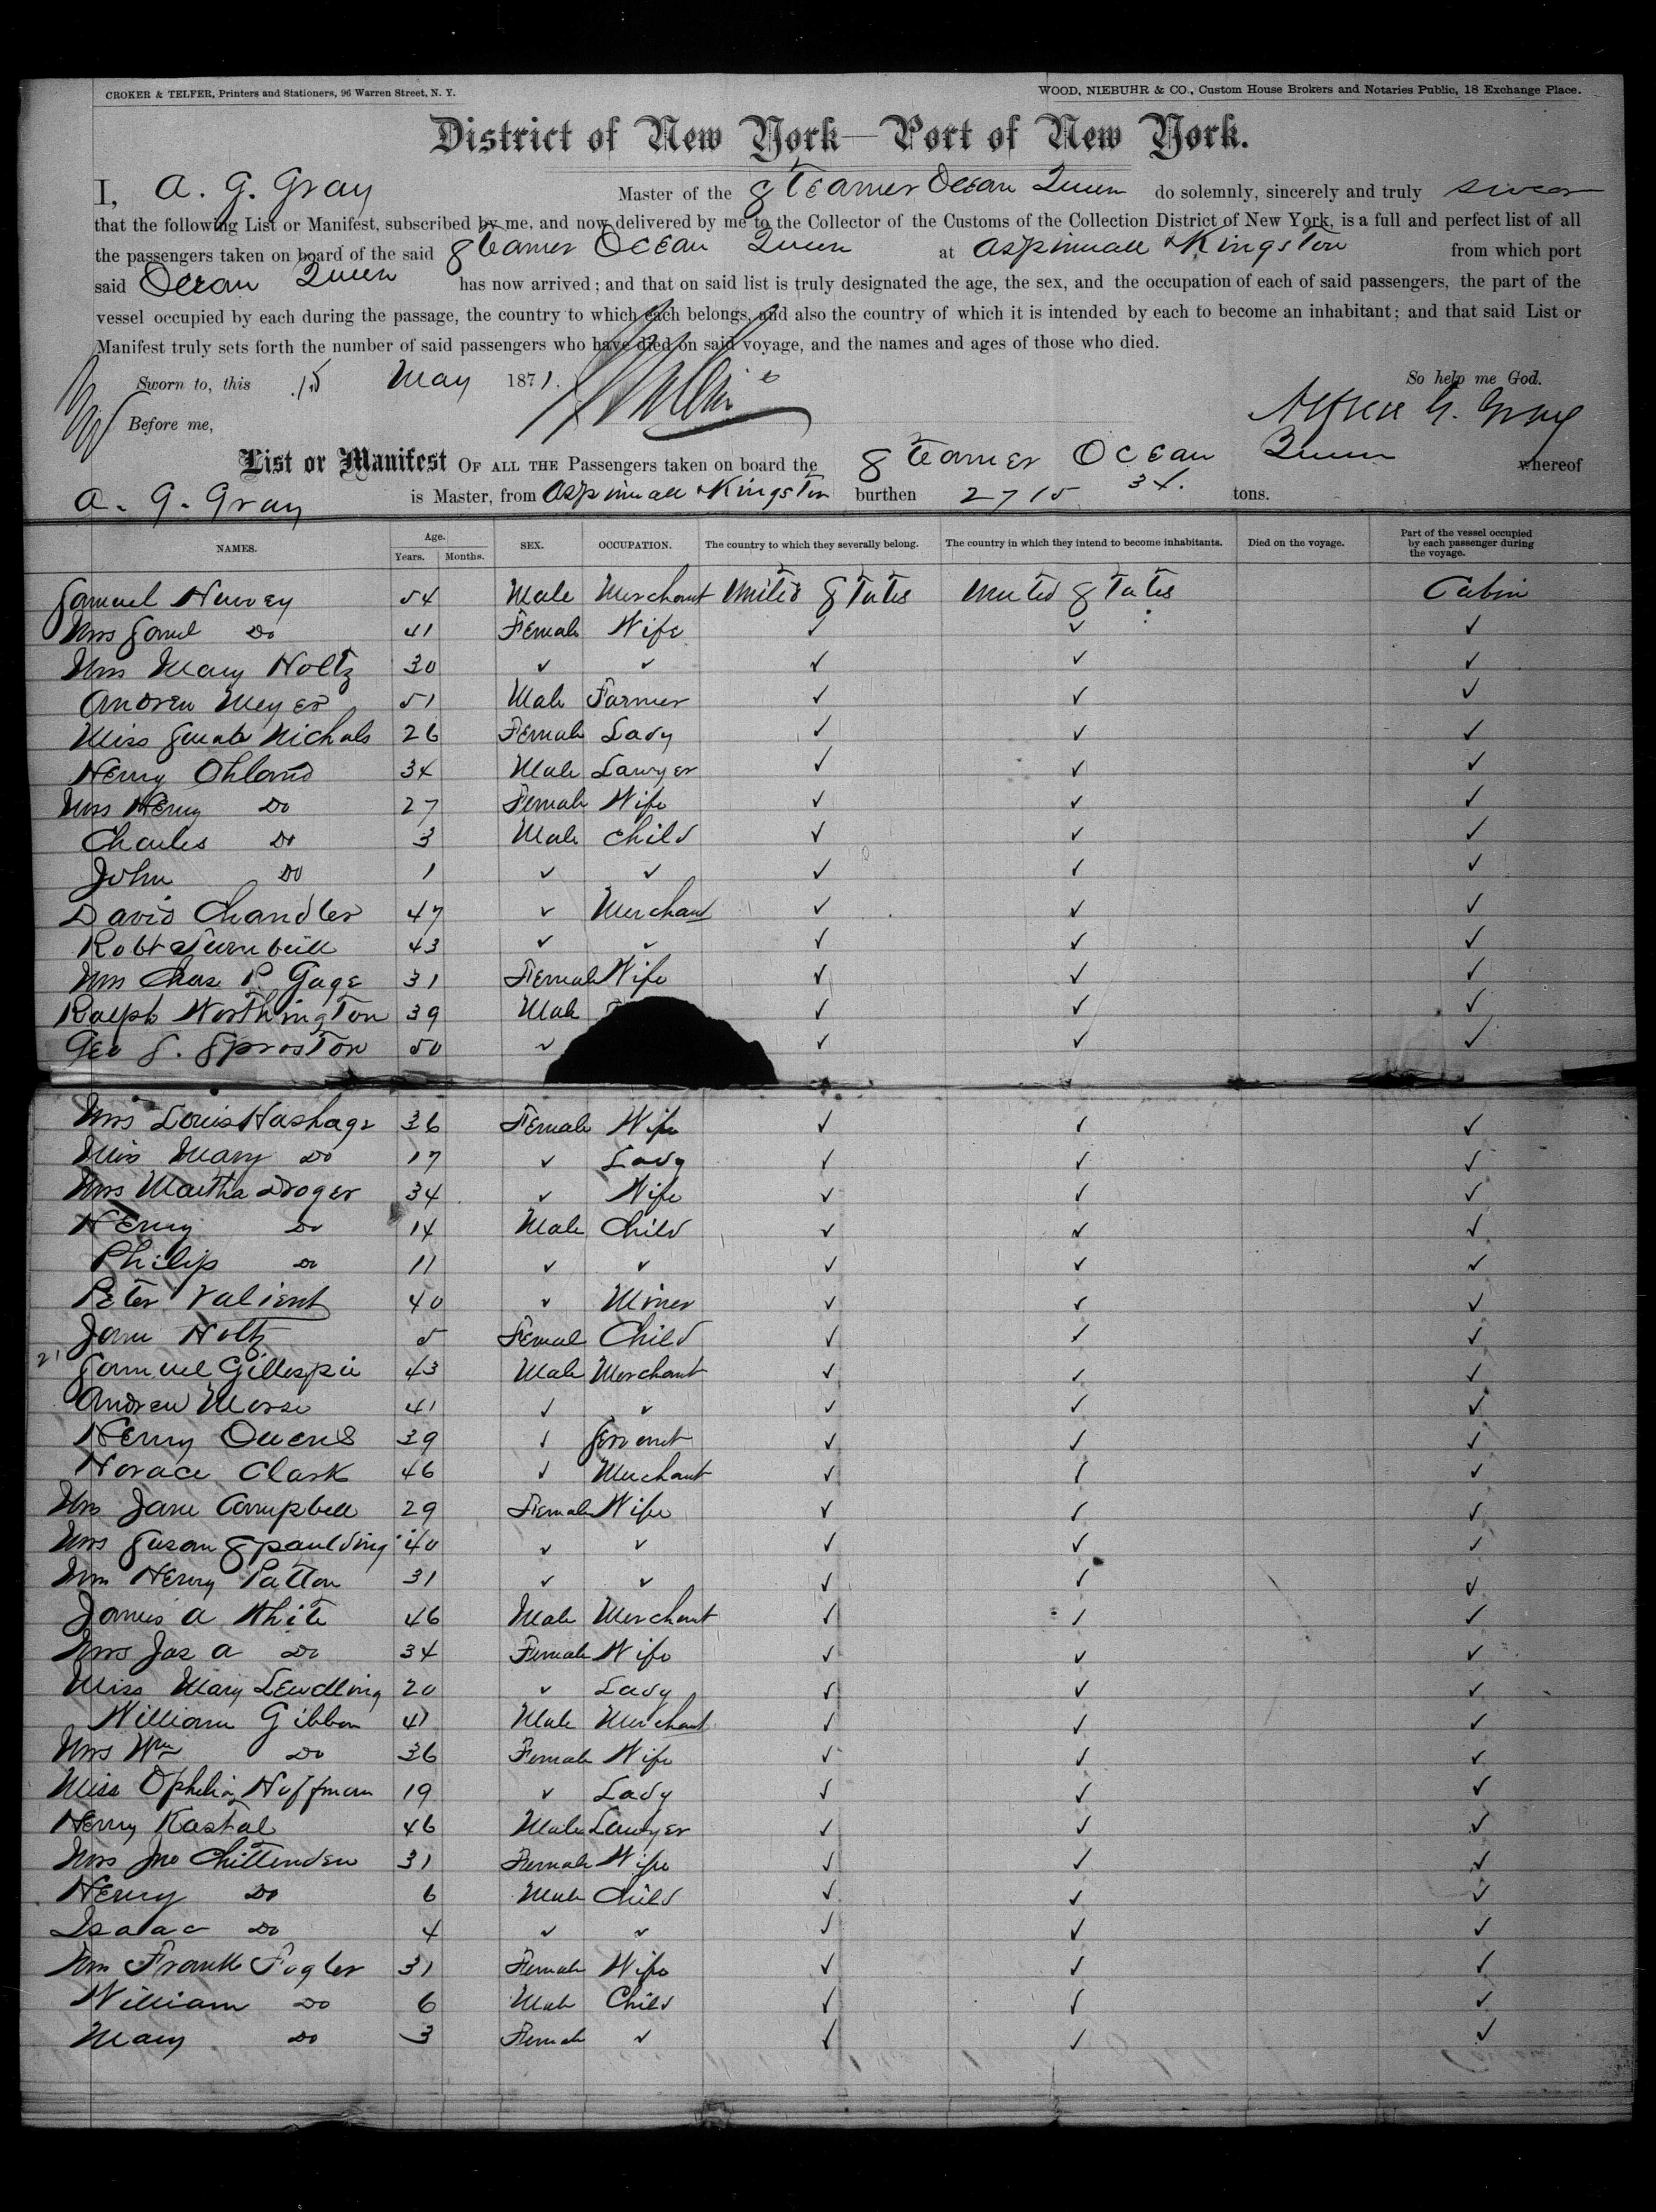 CROKER & TELFER, Printers and Stationers, 96 Warren Street, N. Y.
WOOD, NIEBUHR & CO., Custom House Brokers and Notaries Public, 18 Exchange Place.
District of New York—Port of New York.
I, A. G. Gray Master of the Steamer Ocean Queen do solemnly, sincerely and truly swear
that the following List or Manifest, subscribed by me, and now delivered by me to the Collector of the Customs of the Collection District of New York, is a full and perfect list of all
the passengers taken on board of the said Steamer Ocean Queen at Aspinwall & Kingston from which port
said Ocean Queen has now arrived; and that on said list is truly designated the age, the sex, and the occupation of each of said passengers, the part of the
vessel occupied by each during the passage, the country to which each belongs, and also the country of which it is intended by each to become an inhabitant; and that said List or
Manifest truly sets forth the number of said passengers who have died on said voyage, and the names and ages of those who died.
Sworn to, this 15 May 1871. So help me God.
Before me, Alfred G. Gray
List or Manifest OF ALL THE Passengers taken on board the Steamer Ocean Queen whereof
A. G. Gray is Master, from Aspinwall & Kingston burthen 2715 34. tons.
NAMES. Age. Years. Months. SEX. OCCUPATION. The country to which they severally belong. The country in which they intend to become inhabitants. Died on the voyage. Part of the vessel occupied by each passenger during the voyage.
Samuel Harvey 54 Male Merchant United States United States Cabin
Mrs Saml Do 41 Female Wife ✓ ✓ ✓
Mrs Mary Holtz 30 ✓ ✓ ✓ ✓ ✓
Andrew Meyer 51 Male Farmer ✓ ✓ ✓
Miss Nichols 26 Female Lady ✓ ✓ ✓
Henry Ohland 34 Male Lawyer ✓ ✓ ✓
Mrs Henry Do 27 Female Wife ✓ ✓ ✓
Charles Do 3 Male Child ✓ ✓ ✓
John Do 1 ✓ ✓ ✓ ✓ ✓
David Chandler 47 ✓ Merchant ✓ ✓ ✓
Robt Turnbull 43 ✓ ✓ ✓ ✓ ✓
Mrs Chas P. Gage 31 Female Wife ✓ ✓ ✓
Ralph Worthington 39 Male ✓ ✓ ✓
Geo S. Sproston 50 ✓ ✓ ✓ ✓
Mrs Louis Hashage 36 Female Wife ✓ ✓ ✓
Miss Mary Do 17 ✓ Lady ✓ ✓ ✓
Mrs Martha Droger 34 ✓ Wife ✓ ✓ ✓
Henry Do 14 Male Child ✓ ✓ ✓
Philip Do 11 ✓ ✓ ✓ ✓ ✓
Peter Valient 40 ✓ Miner ✓ ✓ ✓
Jane Holtz 5 Female Child ✓ ✓ ✓
21 Samuel Gillespie 43 Male Merchant ✓ ✓ ✓
Andrew Morse 41 ✓ ✓ ✓ ✓ ✓
Henry Owens 39 ✓ Servant ✓ ✓ ✓
Horace Clark 46 ✓ Merchant ✓ ✓ ✓
Mrs Jane Campbell 29 Female Wife ✓ ✓ ✓
Mrs Susan Spaulding 40 ✓ ✓ ✓ ✓ ✓
Mrs Henry Patton 31 ✓ ✓ ✓ ✓ ✓
James A White 46 Male Merchant ✓ ✓ ✓
Mrs Jas A Do 34 Female Wife ✓ ✓ ✓
Miss Mary Lewdling 20 ✓ Lady ✓ ✓ ✓
William Gibbon 41 Male Merchant ✓ ✓ ✓
Mrs Wm Do 36 Female Wife ✓ ✓ ✓
Miss Ophelia Hoffman 19 ✓ Lady ✓ ✓ ✓
Henry Kastal 46 Male Lawyer ✓ ✓ ✓
Mrs Jno Chittenden 31 Female Wife ✓ ✓ ✓
Henry Do 6 Male Child ✓ ✓ ✓
Isaac Do 4 ✓ ✓ ✓ ✓ ✓
Mrs Frank Fogler 31 Female Wife ✓ ✓ ✓
William Do 6 Male Child ✓ ✓ ✓
Mary Do 3 Female ✓ ✓ ✓ ✓